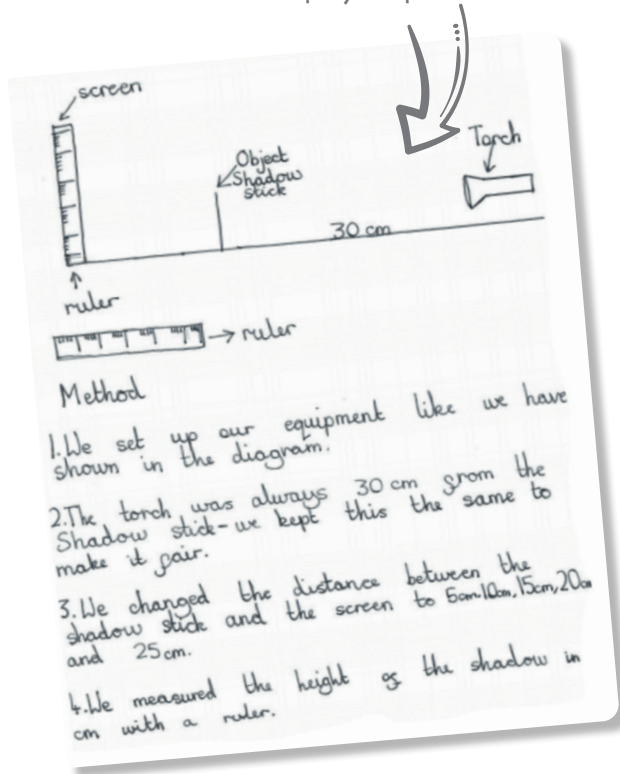 screen
Torch
Object
Shadow
stick
30 cm
ruler
ruler
Method
1.We set up our equipment like we have
shown in the diagram.
2.The torch was always 30 cm from the
Shadow stick-we kept this the same to
make it fair.
3.We changed the distance between the
shadow stick and the screen to 5cm,10cm,15cm,20cm
and 25cm.
4.We measured the height of the shadow in
cm with a ruler.